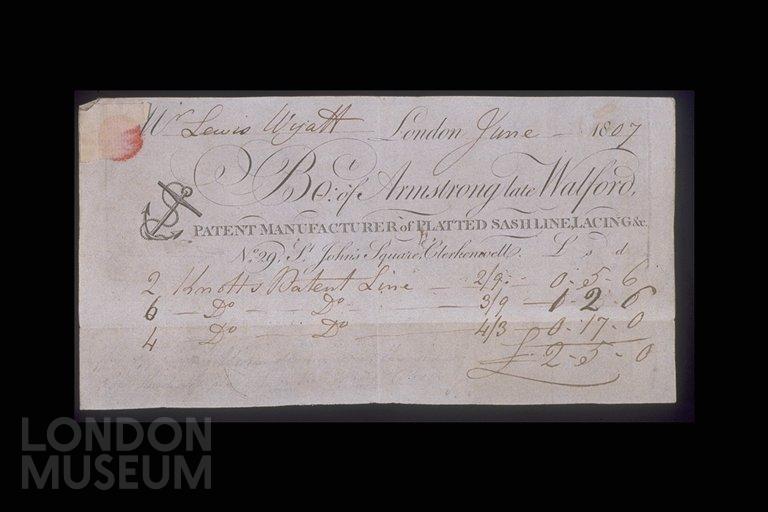 Mr Lewis Wyatt London June - 1807
Bot. of Armstrong late Walford,
PATENT MANUFACTURER of PLATTED SASHLINE, LACING &c.
No. 29, St. John's Square, Clerkenwell. L s d
2 Knotts Patent Line - 2/9 - 0 - 5 - 6
6 - Do - Do - 3/9 - 1 2 - 6
4 Do - Do - 4/3 - 0 - 17 - 0
£ 2 - 5 - 0
LONDON
MUSEUM